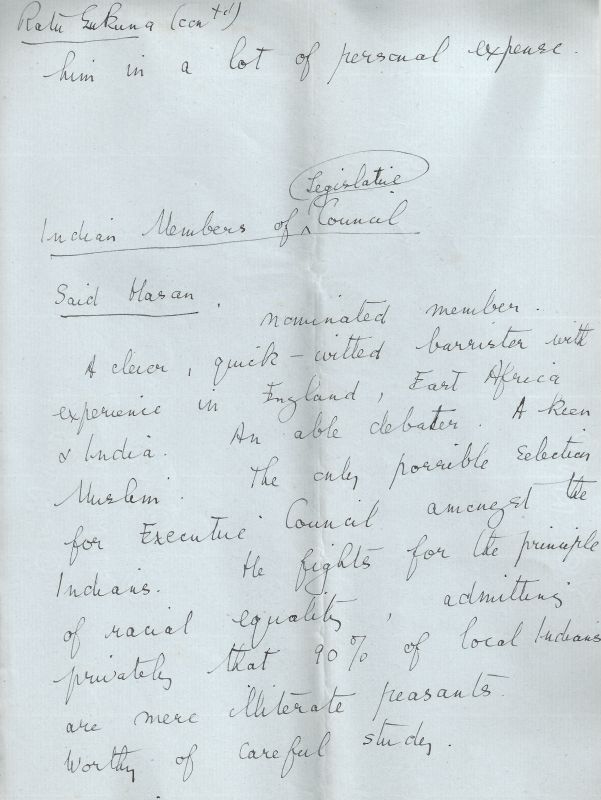 Ratu Sukuna (contd)
him in a lot of personal expense.
Legislative
Indian Members of ^ Council
Said Hasan, nominated member.
A clever, quick-witted barrister with
experience in England, East Africa
& India. An able debater. A keen
Muslim. The only possible selection
for Executive Council amongst the
Indians. He fights for the principle
of racial equality, admitting
privately that 90% of local Indians
are mere illiterate peasants.
Worthy of careful study.